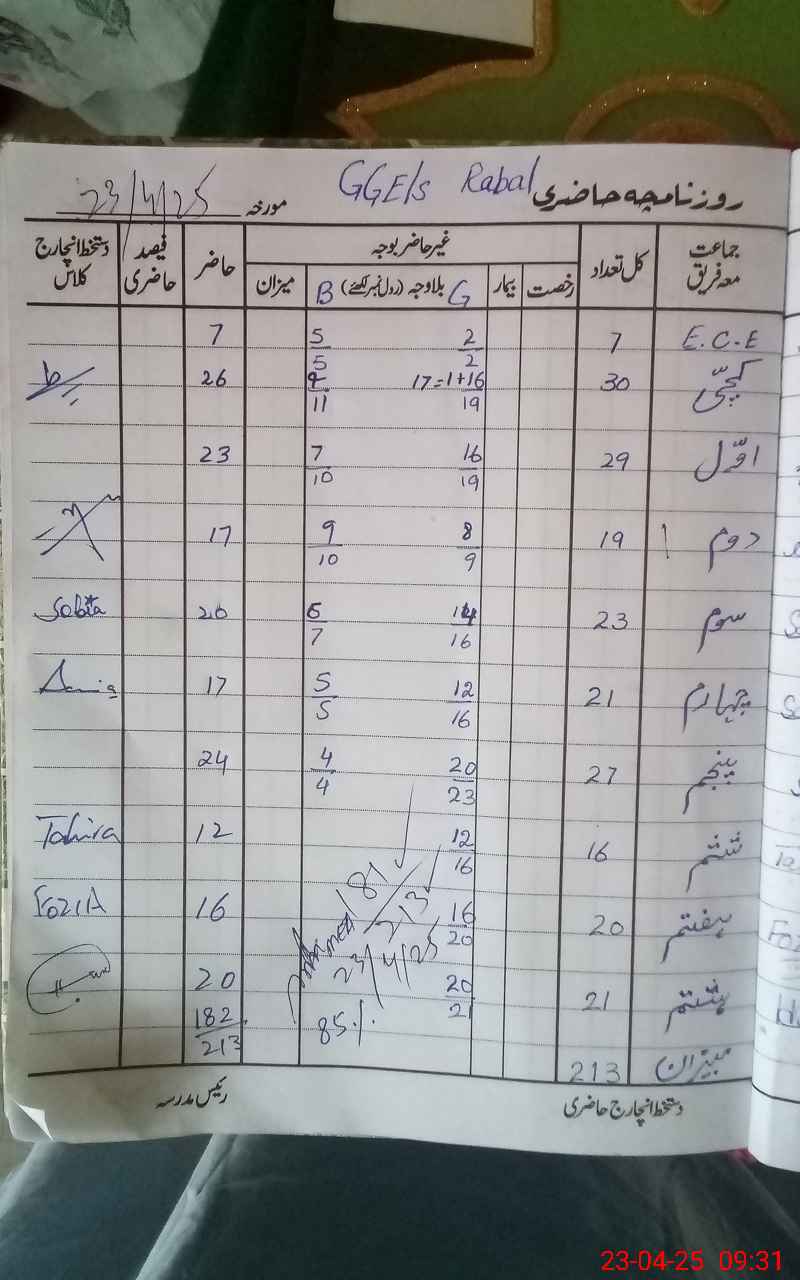 GGE/s Rabal روزنامچہ حاضری
مورخہ 23/4/25
جماعت معہ فریق | کل تعداد | غیر حاضر بوجہ | حاضر | فیصد حاضری | دستخط انچارج کلاس
رخصت | بیمار | G بلاوجہ (رول نمبر لکھئے) B | میزان
E.C.E | 7 | 2/2 | 5/5 | 7
کچّی | 30 | 17=1+16/19 | 9/11 | 26
اوّل | 29 | 16/19 | 7/10 | 23
دوم | 19 | 8/9 | 9/10 | 17
سوم | 23 | 14/16 | 6/7 | 20 | Sobia
چہارم | 21 | 12/16 | 5/5 | 17
پنجم | 27 | 20/23 | 4/4 | 24
ششم | 16 | 12/16 | 12 | Tahira
ہفتم | 20 | 16/20 | 16 | FoziA
ہشتم | 21 | 20/21 | 20
میزان | 213 | 182/213
181/213
23/4/25
85%
دستخط انچارج حاضری
رئیس مدرسہ
23-04-25 09:31